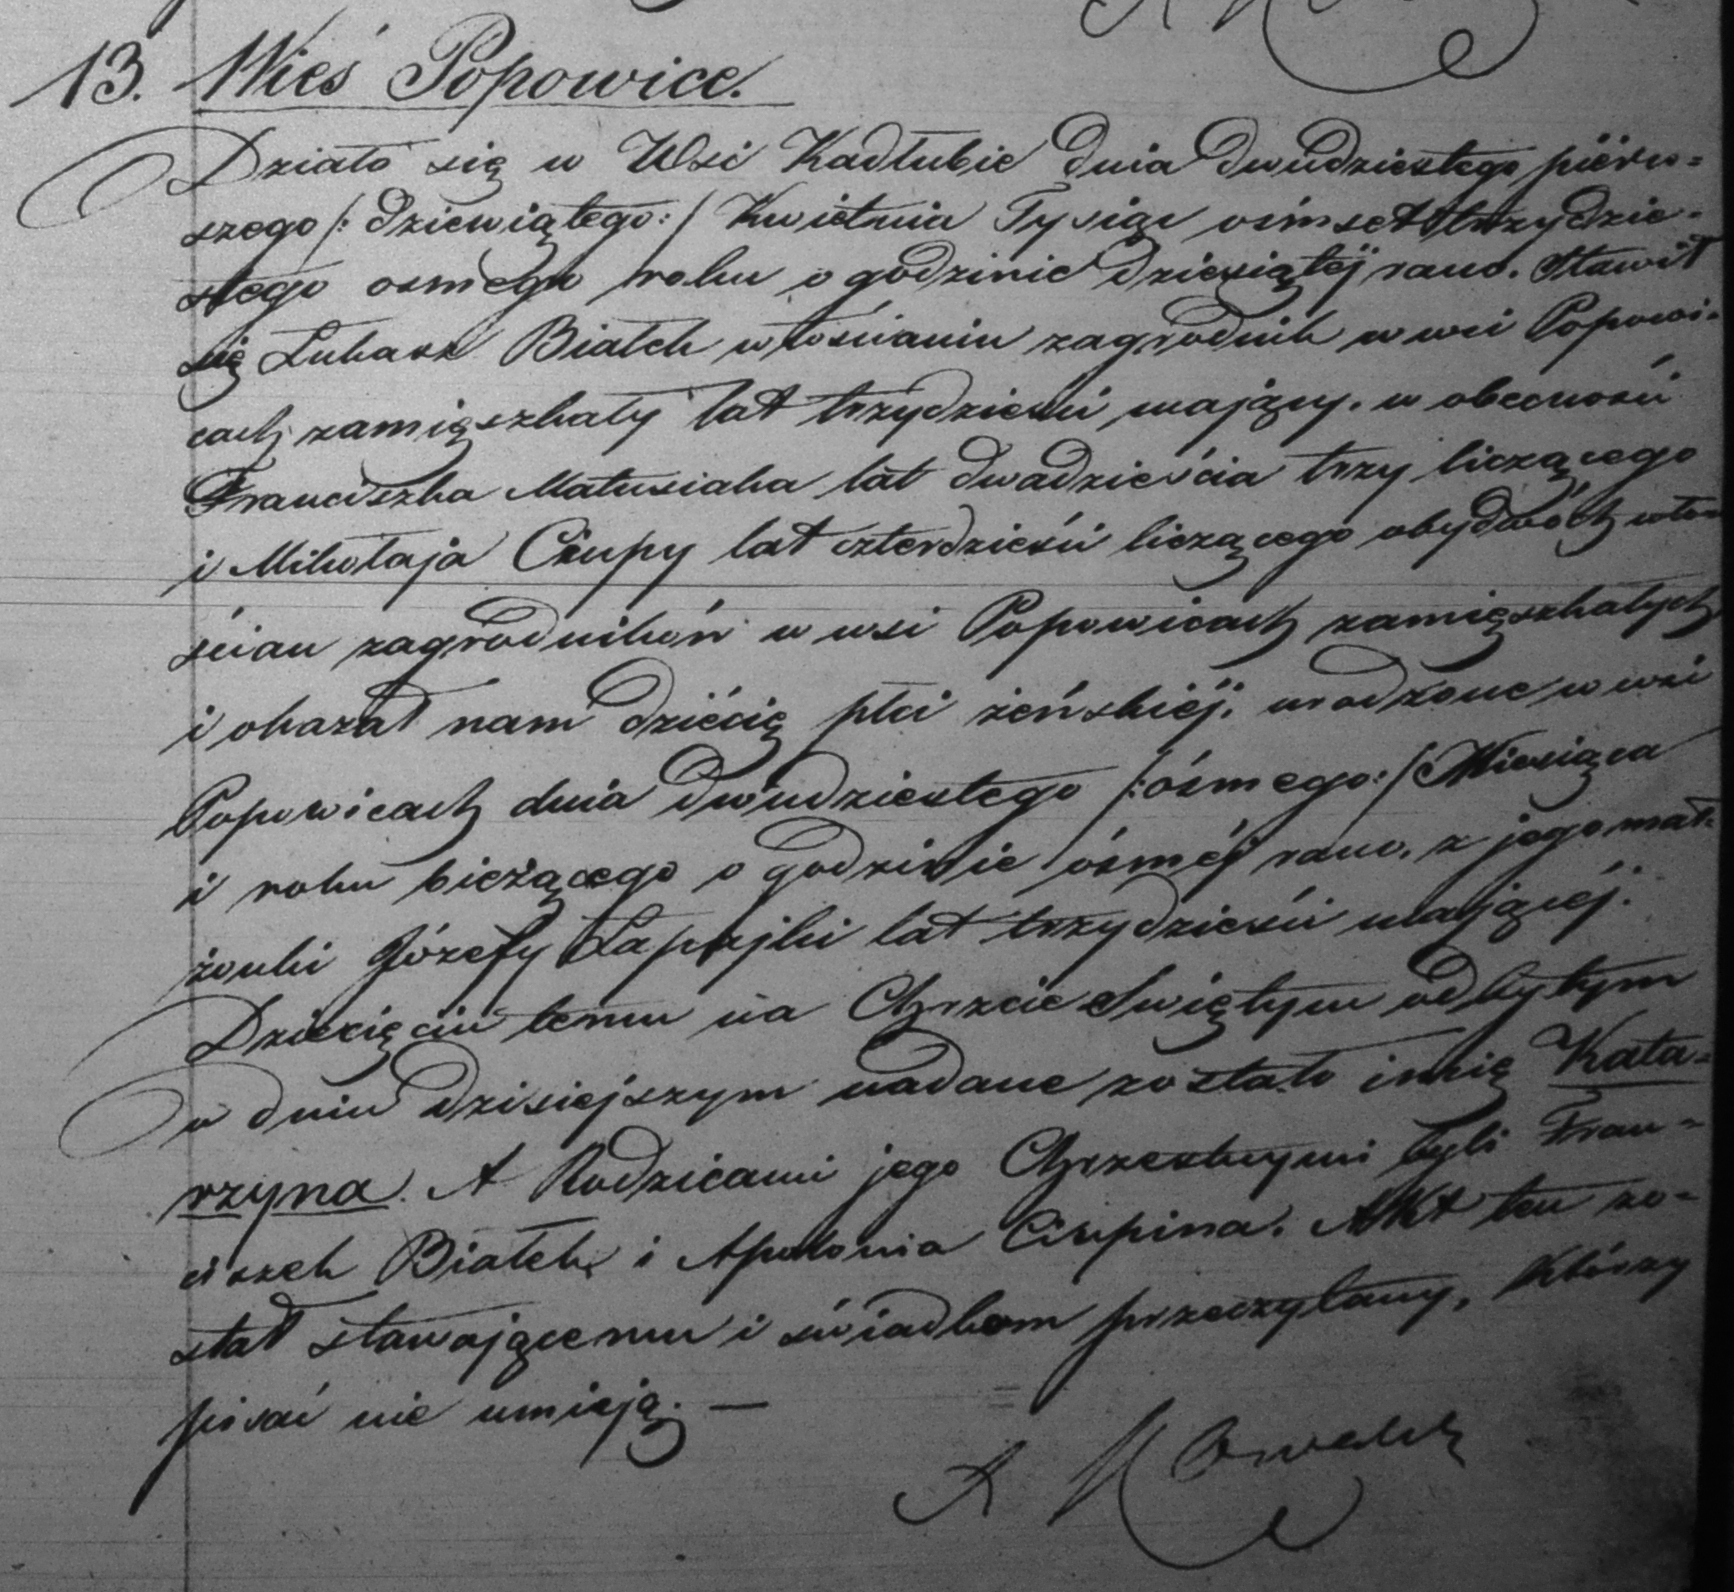 13. Wieś Popowice.
Działo się w Wsi Kadłubie dnia dwudziestego piérw-
szego /: dziewiątego:/ Kwietnia Tysiąc ośmset trzydzie-
stego osmego roku o godzinie dziesiątéj rano. Stawił
się Łukasz Białek włościanin zagrodnik w wsi Popowi-
cach zamięszkały lat trzydzieści mający. w obecności
Franciszka Matusiaka lat dwadzieścia trzy liczącego
i Mikołaja Ciupy lat czterdzieści liczącego obydwóch wło-
ścian zagrodników w wsi Popowicach zamięszkałych
i okazał nam dziécię płci żeńskiéj. urodzone w wsi
Popowicach dnia dwudziestego /:ósmego:/ Miesiąca
i roku bieżącego o godzinie ósméj rano. z jego mał-
żonki Józefy Łapajki lat trzydzieści mającéj.
Dziecięciu temu na Chrzcie Swiętym odbytym
w dniu dzisiejszym nadane zostało imię Kata-
rzyna. A Rodzicami jego Chrzestnymi byli Fran-
ciszek Białek i Apolonia Ciupina. Akt ten zo-
stał stawającemu i świadkom przeczytany, którzy
pisać nie umieją. —
A